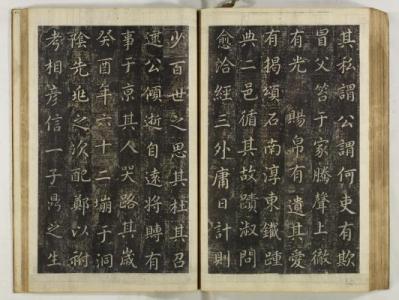 其私謂公謂何吏有欺
冒父笞于家騰聲上徹
有光 賜帛有遺其愛
有揭頌石南淳東鐵踵
典二邑循其故蹟淑問
愈洽經三外庸日計則
少百世之思其往其召
遽公傾逝自遠將轉有
事于京其人哭路其歲
癸酉年六十二堋于洞
陰先兆之次配鄭以祔
考相彥信一子鼎之生